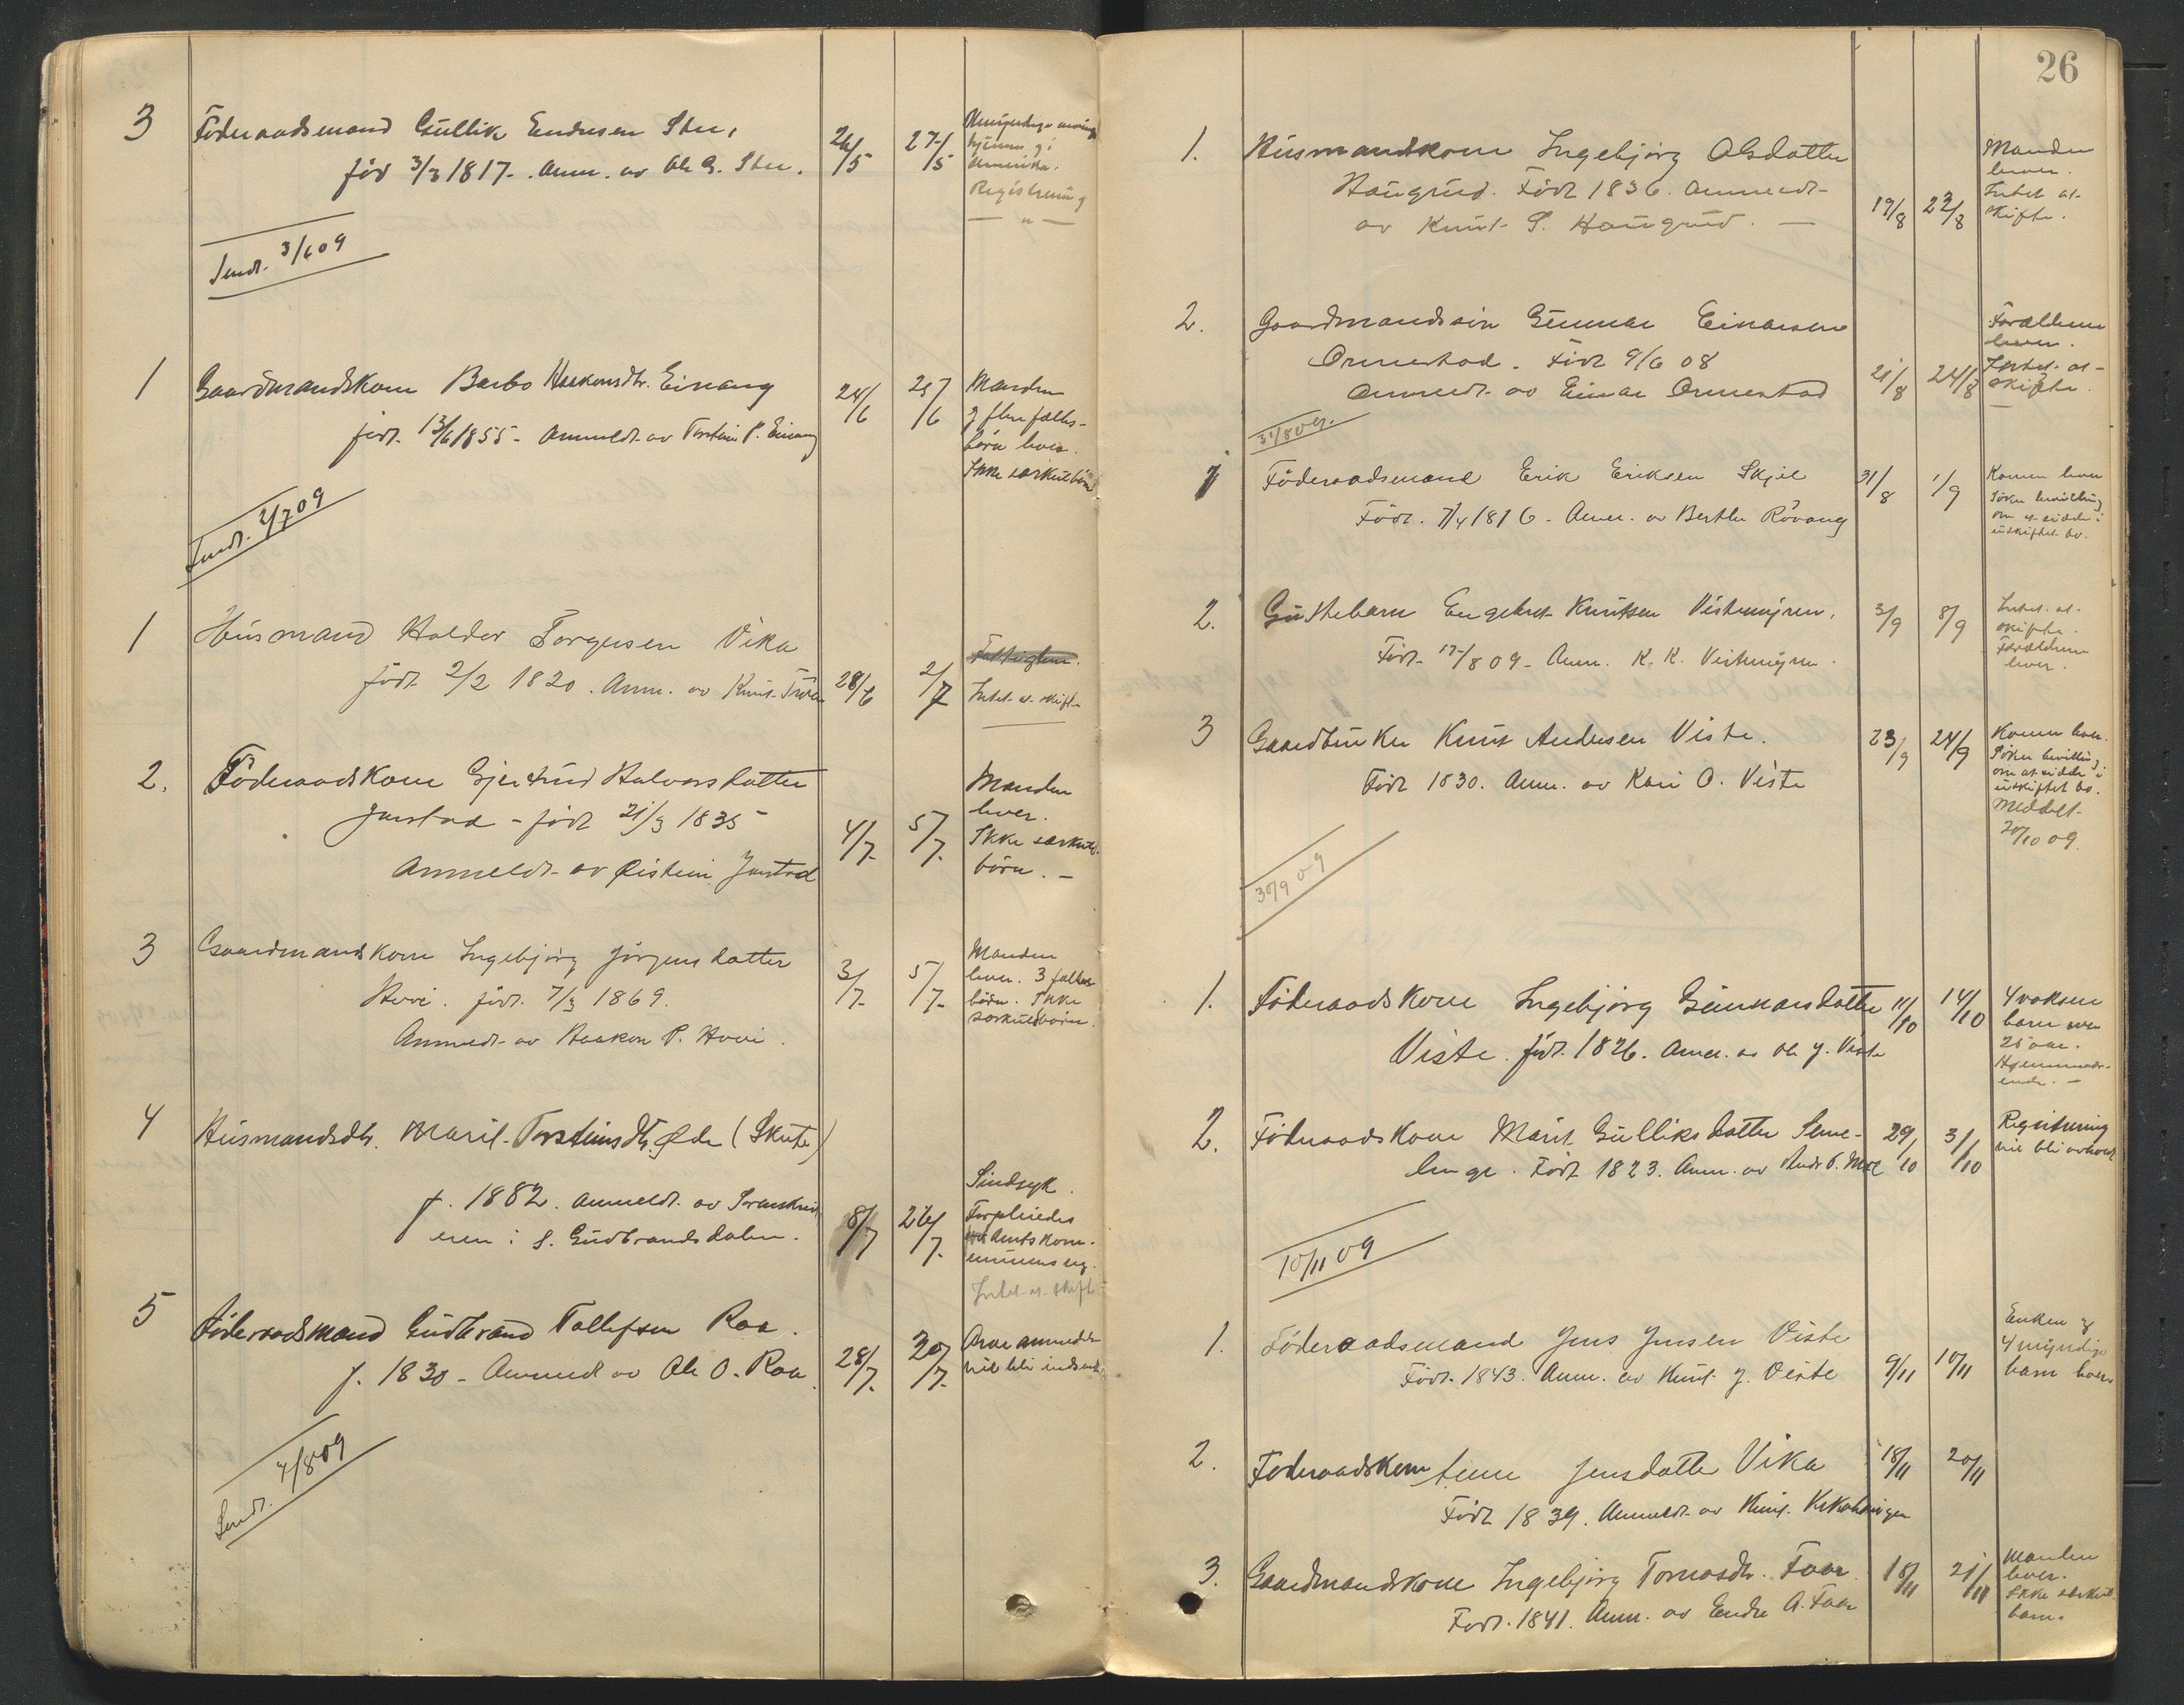 3 Föderaadsmand Gullik Endresen Stee,
föd 3/3 1817. Anm. av Ole G. Stee.
26/5 27/5
Amerika.
Registrering
— " —
Sendt. 3/6 09
1 Gaardmandskone Barbo Haakonsdtr. Einang
født. 13/6 1855 - Anmeldt av Torstein P. Einang
24/6 25/6
Manden
og flere fælles-
börn lever.
Ikke særkulsbörn
Sendt. 2/7 09
1 Husmand Haldor Torgersen Vika
født 2/2 1820. Anm. av Knut
28/6 2/7
Intet at skifte
2. Föderaadskone Gjertrud Halvorsdatter
Jarstad - født 21/3 1835
Anmeldt av Øistein Jarstad
4/7 5/7
Manden
lever.
Ikke særkuls-
börn. —
3 Gaardmandskone Ingebjørg Jörgensdatter
Hovi. født. 7/3 1869.
Anmeldt av Haakon P. Hovi.
3/7 5/7
Manden
lever. 3 fælles
börn. Ikke
særkulsbörn.
4 Husmandsdtr. Marit Torsteinsdtr. Øde (Skute)
f. 1882. Anmeldt av Sorenskriv
eren i S. Gudbrandsdalen.
8/7 26/7
Sindsyk.
Forpleiedes
Amtskom-
munens
Intet at skifte
5 Föderaadsmand Gudbrand Tollefsen Roa.
f. 1830 - Anmeldt av Ole O. Roa.
28/7 30/7
Arveanmeldelse
vil bli indsendt
Sendt. 4/8 09
26
1. Husmandskone Ingebjörg Olsdatter
Haugrud. Födt 1836. Anmeldt
av Knut S. Haugrud. —
19/8 23/8
Manden
lever.
Intet at
skifte.
2. Gaardmandssön Gunnar Einarsen
Ormestad. Födt 9/6 08
Anmeldt av Einar Ormestad
21/8 24/8
Forældrene
lever.
Intet at
skifte.
31/8 09.
1 Föderaadsmand Erik Eriksen Skjel
Födt. 7/4 1816. Anm. av Berthe Rövang
31/8 1/9
Konen lever
Söker bevilling
om at sidde i
uskiftet bo.
2. Guttebarn Engebret Knutsen Vistemyren.
Födt. 17/8 09. Anm. K. K. Vistemyren.
3/9 8/9
Intet at
skifte.
Forældrene
lever.
3 Gaardbruker Knut Andersen Viste.
Födt 1830. Anm. av Kari O. Viste
23/9 24/9
Konen lever.
Söker bevilling
om at sidde i
uskiftet bo.
Meddelt
20/10 09.
30/9 09
1. Föderaadskone Ingebjörg Gunnarsdatter
Viste. född. 1826. Anm. av Ole J. Viste
11/10 14/10
4 voksne
barn over
25 aar.
2. Föderaadskone Marit Gulliksdatter Seme-
lenge. Födt 1823. Anm. av Andr P. Moe
29/10 31/10
Registrering
vil bli avholdt
10/11 09
1. Föderaadsmand Jens Jensen Viste
Födt. 1843. Anm. av Knut J. Viste
9/11 10/11
Enken og
4 myndige
barn lever.
2. Föderaadskone Anne Jensdatter Vika
Födt 1839. Anmeldt av Knut
18/11 20/11
3. Gaardmandskone Ingebjörg Tomasdtr. Foss
Födt. 1841. Anm. av Endre A. Foss
18/11 21/11
Manden
lever.
Ikke særkuls
barn.